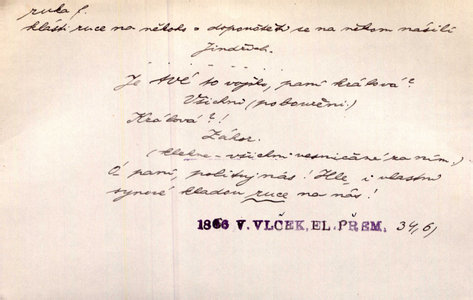 ruka f.
klásti ruce na někoho = dopouštěti se na někom násilí
Jindřich.
Je tvé to vojsko, paní králová?
Všichni (pobouřeni.)
Králová?!
Zákor.
(klekne – všichni vesničané za ním.)
Ó paní, polituj nás! Hle, i vlastní
synové kladou ruce na nás!
1866 V. VLČEK, EL. PŘEM. 34, 6,